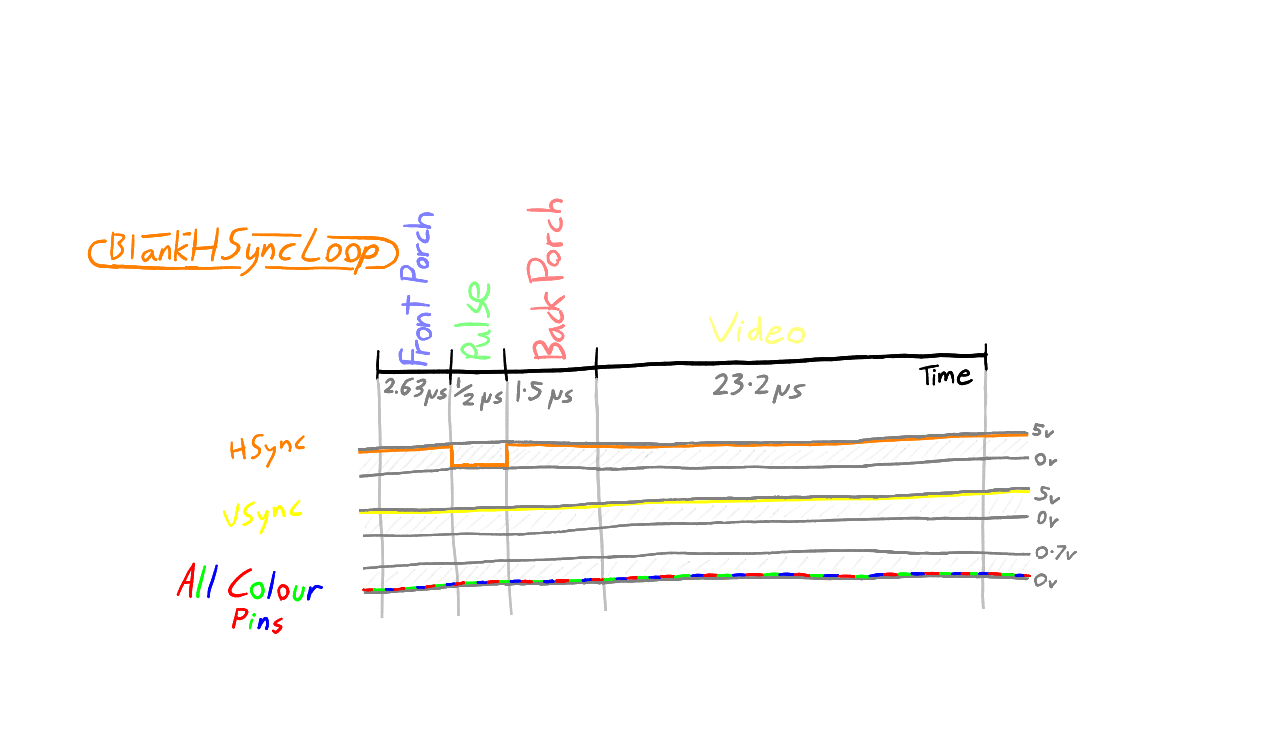 BlankHSyncLoop
Front Porch
Pulse
Back Porch
Video
2.63µs
1/2 µs
1.5 µs
23.2µs
Time
HSync
5v
0v
VSync
5v
0v
0.7v
All Colour
Pins
0v